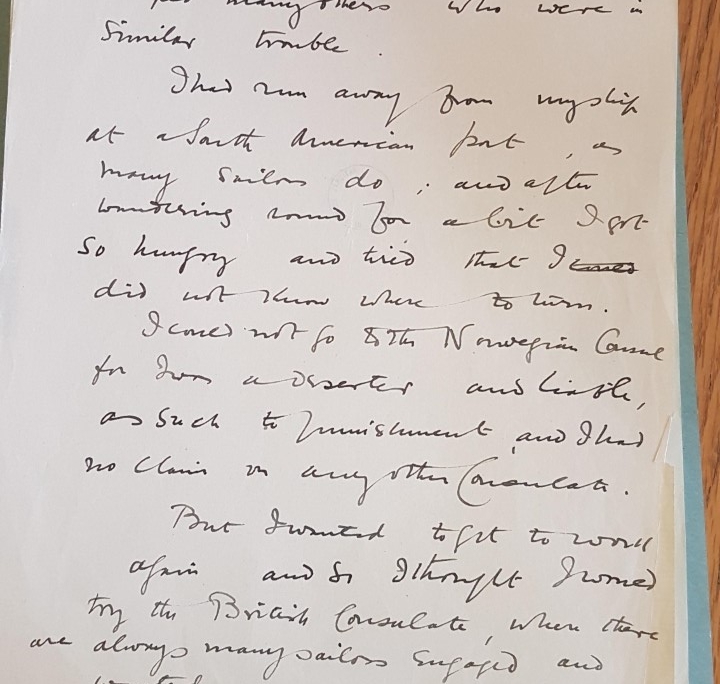 many others who were in
similar trouble.
I had run away from my ship
at a South American port, as
many sailors do; and after
wandering round for a bit I got
so hungry and tired that I
did not know where to turn.
I could not go to the Norwegian Consul
for I was a deserter and liable,
as such to punishment, and I had
no claim on any other Consulate.
But I wanted to get to work
again and so I thought I would
try the British Consulate, where there
are always many sailors engaged and